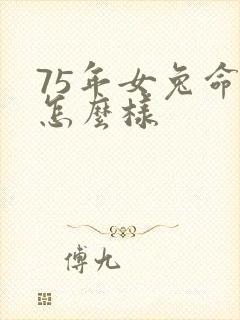 75年女兔命
怎麼樣
傅九